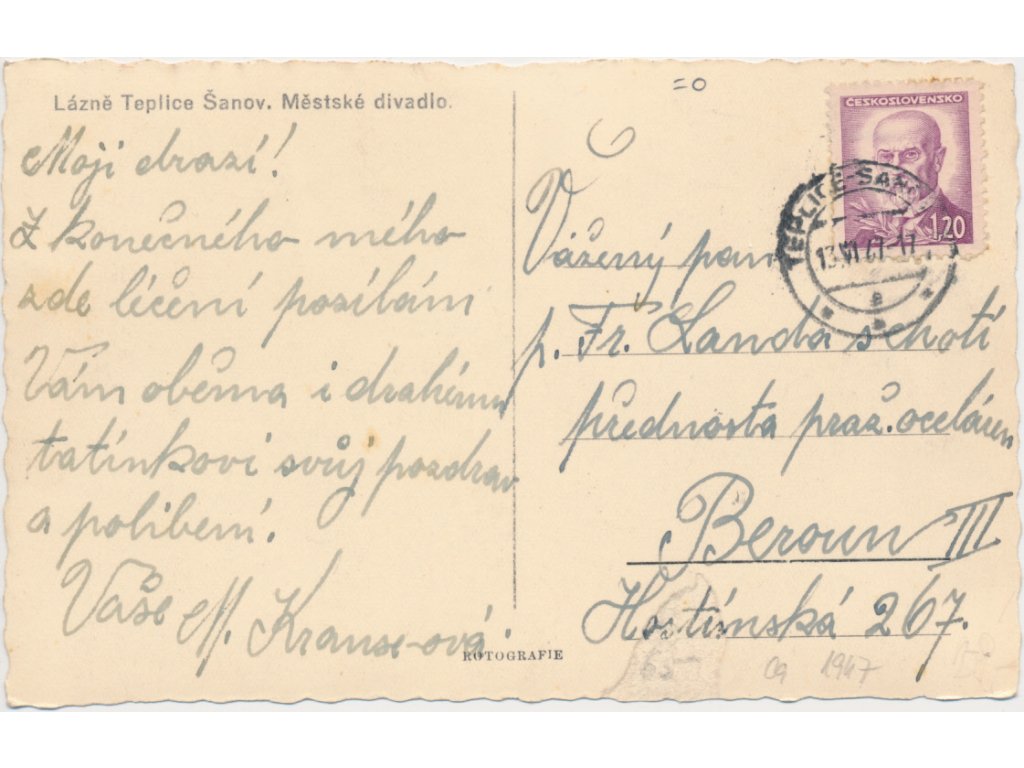 Lázně Teplice Šanov. Městské divadlo.
Moji drazí!
Z konečného mého
zde léčení posílám
Vám oběma i drahému
tatínkovi svůj pozdrav
a políbení.
Vaše M. Krause-ová.
ROTOGRAFIE
=0
ČESKOSLOVENSKO
1,20
TEPLICE-ŠANOV 1
13.VI.47-17
e
Vážený pan
p. Fr. Landa s chotí
přednosta praž. oceláren
Beroun III
Hostímská 267.
65-
ca 1947